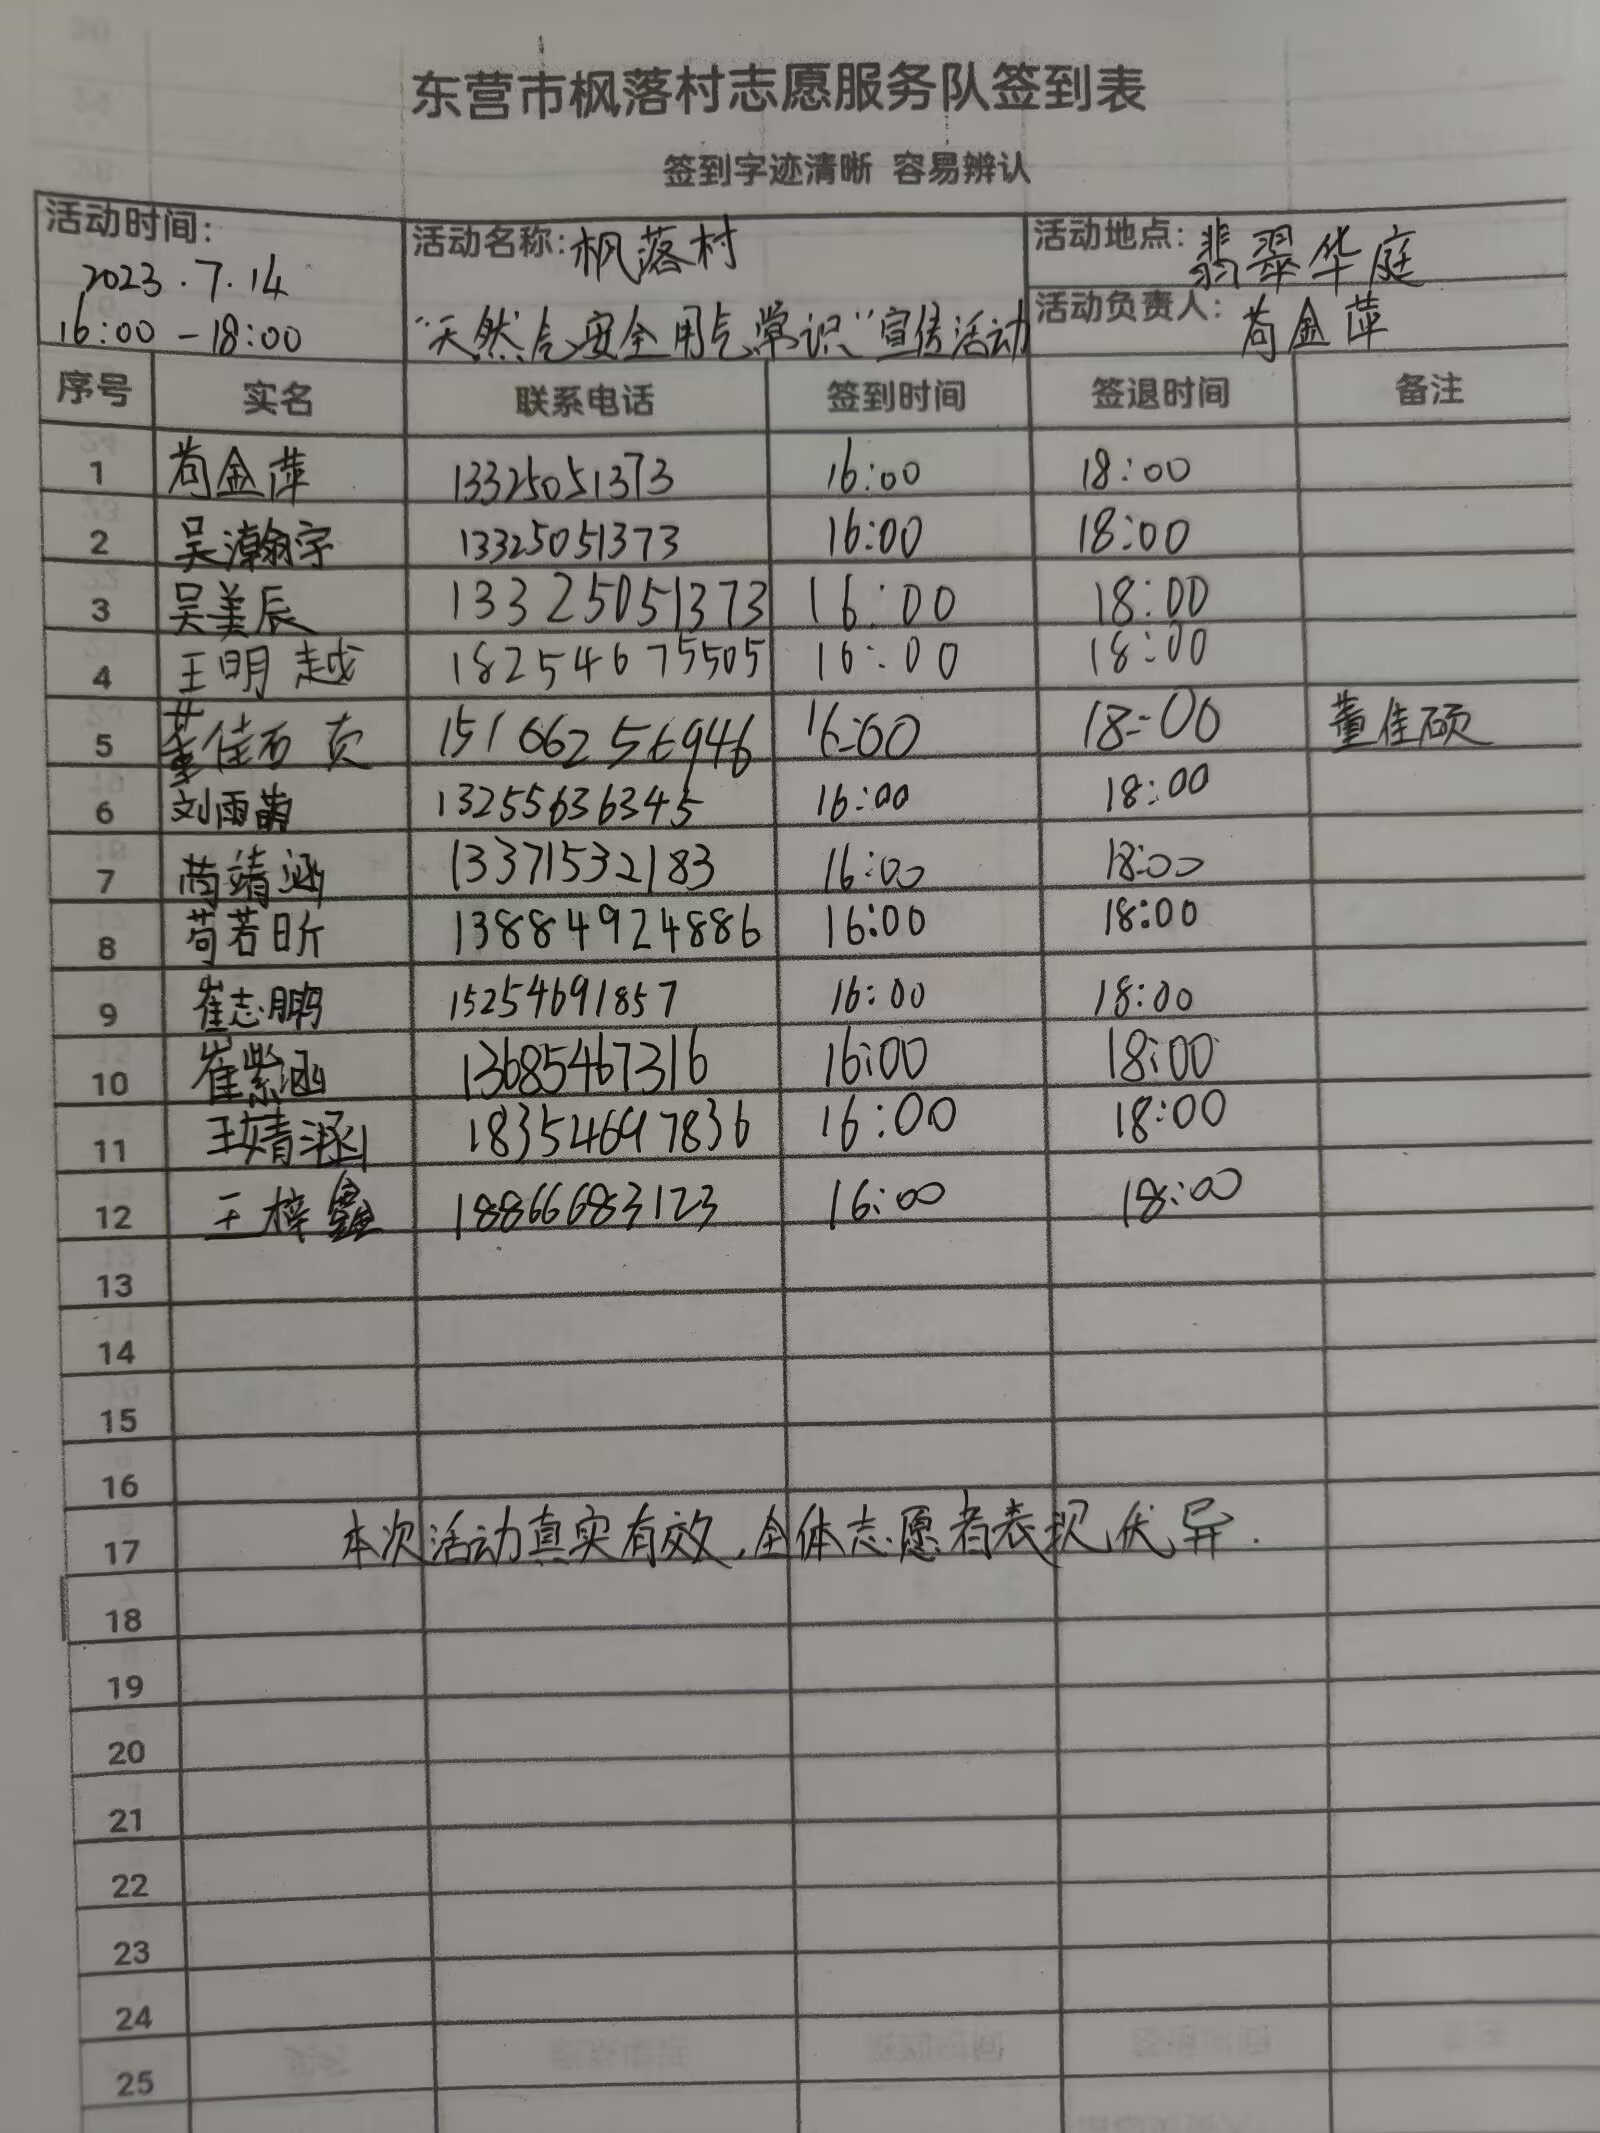 东营市枫落村志愿服务队签到表
签到字迹清晰 容易辨认
活动时间: 2023.7.14 16:00-18:00
活动名称:枫落村 “天然气安全用气常识”宣传活动
活动地点: 翡翠华庭
活动负责人: 苟金萍
序号 实名 联系电话 签到时间 签退时间 备注
1 苟金萍 13325051373 16:00 18:00
2 吴瀚宇 13325051373 16:00 18:00
3 吴美辰 13325051373 16:00 18:00
4 王明越 18254675505 16:00 18:00
5 董佳硕 15166256946 16:00 18:00 董佳硕
6 刘雨萌 13255636345 16:00 18:00
7 苟靖涵 13371532183 16:00 18:00
8 苟若昕 13884924886 16:00 18:00
9 崔志鹏 15254691857 16:00 18:00
10 崔紫涵 13685467316 16:00 18:00
11 王婧涵 18354697836 16:00 18:00
12 王梓鑫 18866683123 16:00 18:00
13
14
15
16
17 本次活动真实有效,全体志愿者表现优异.
18
19
20
21
22
23
24
25